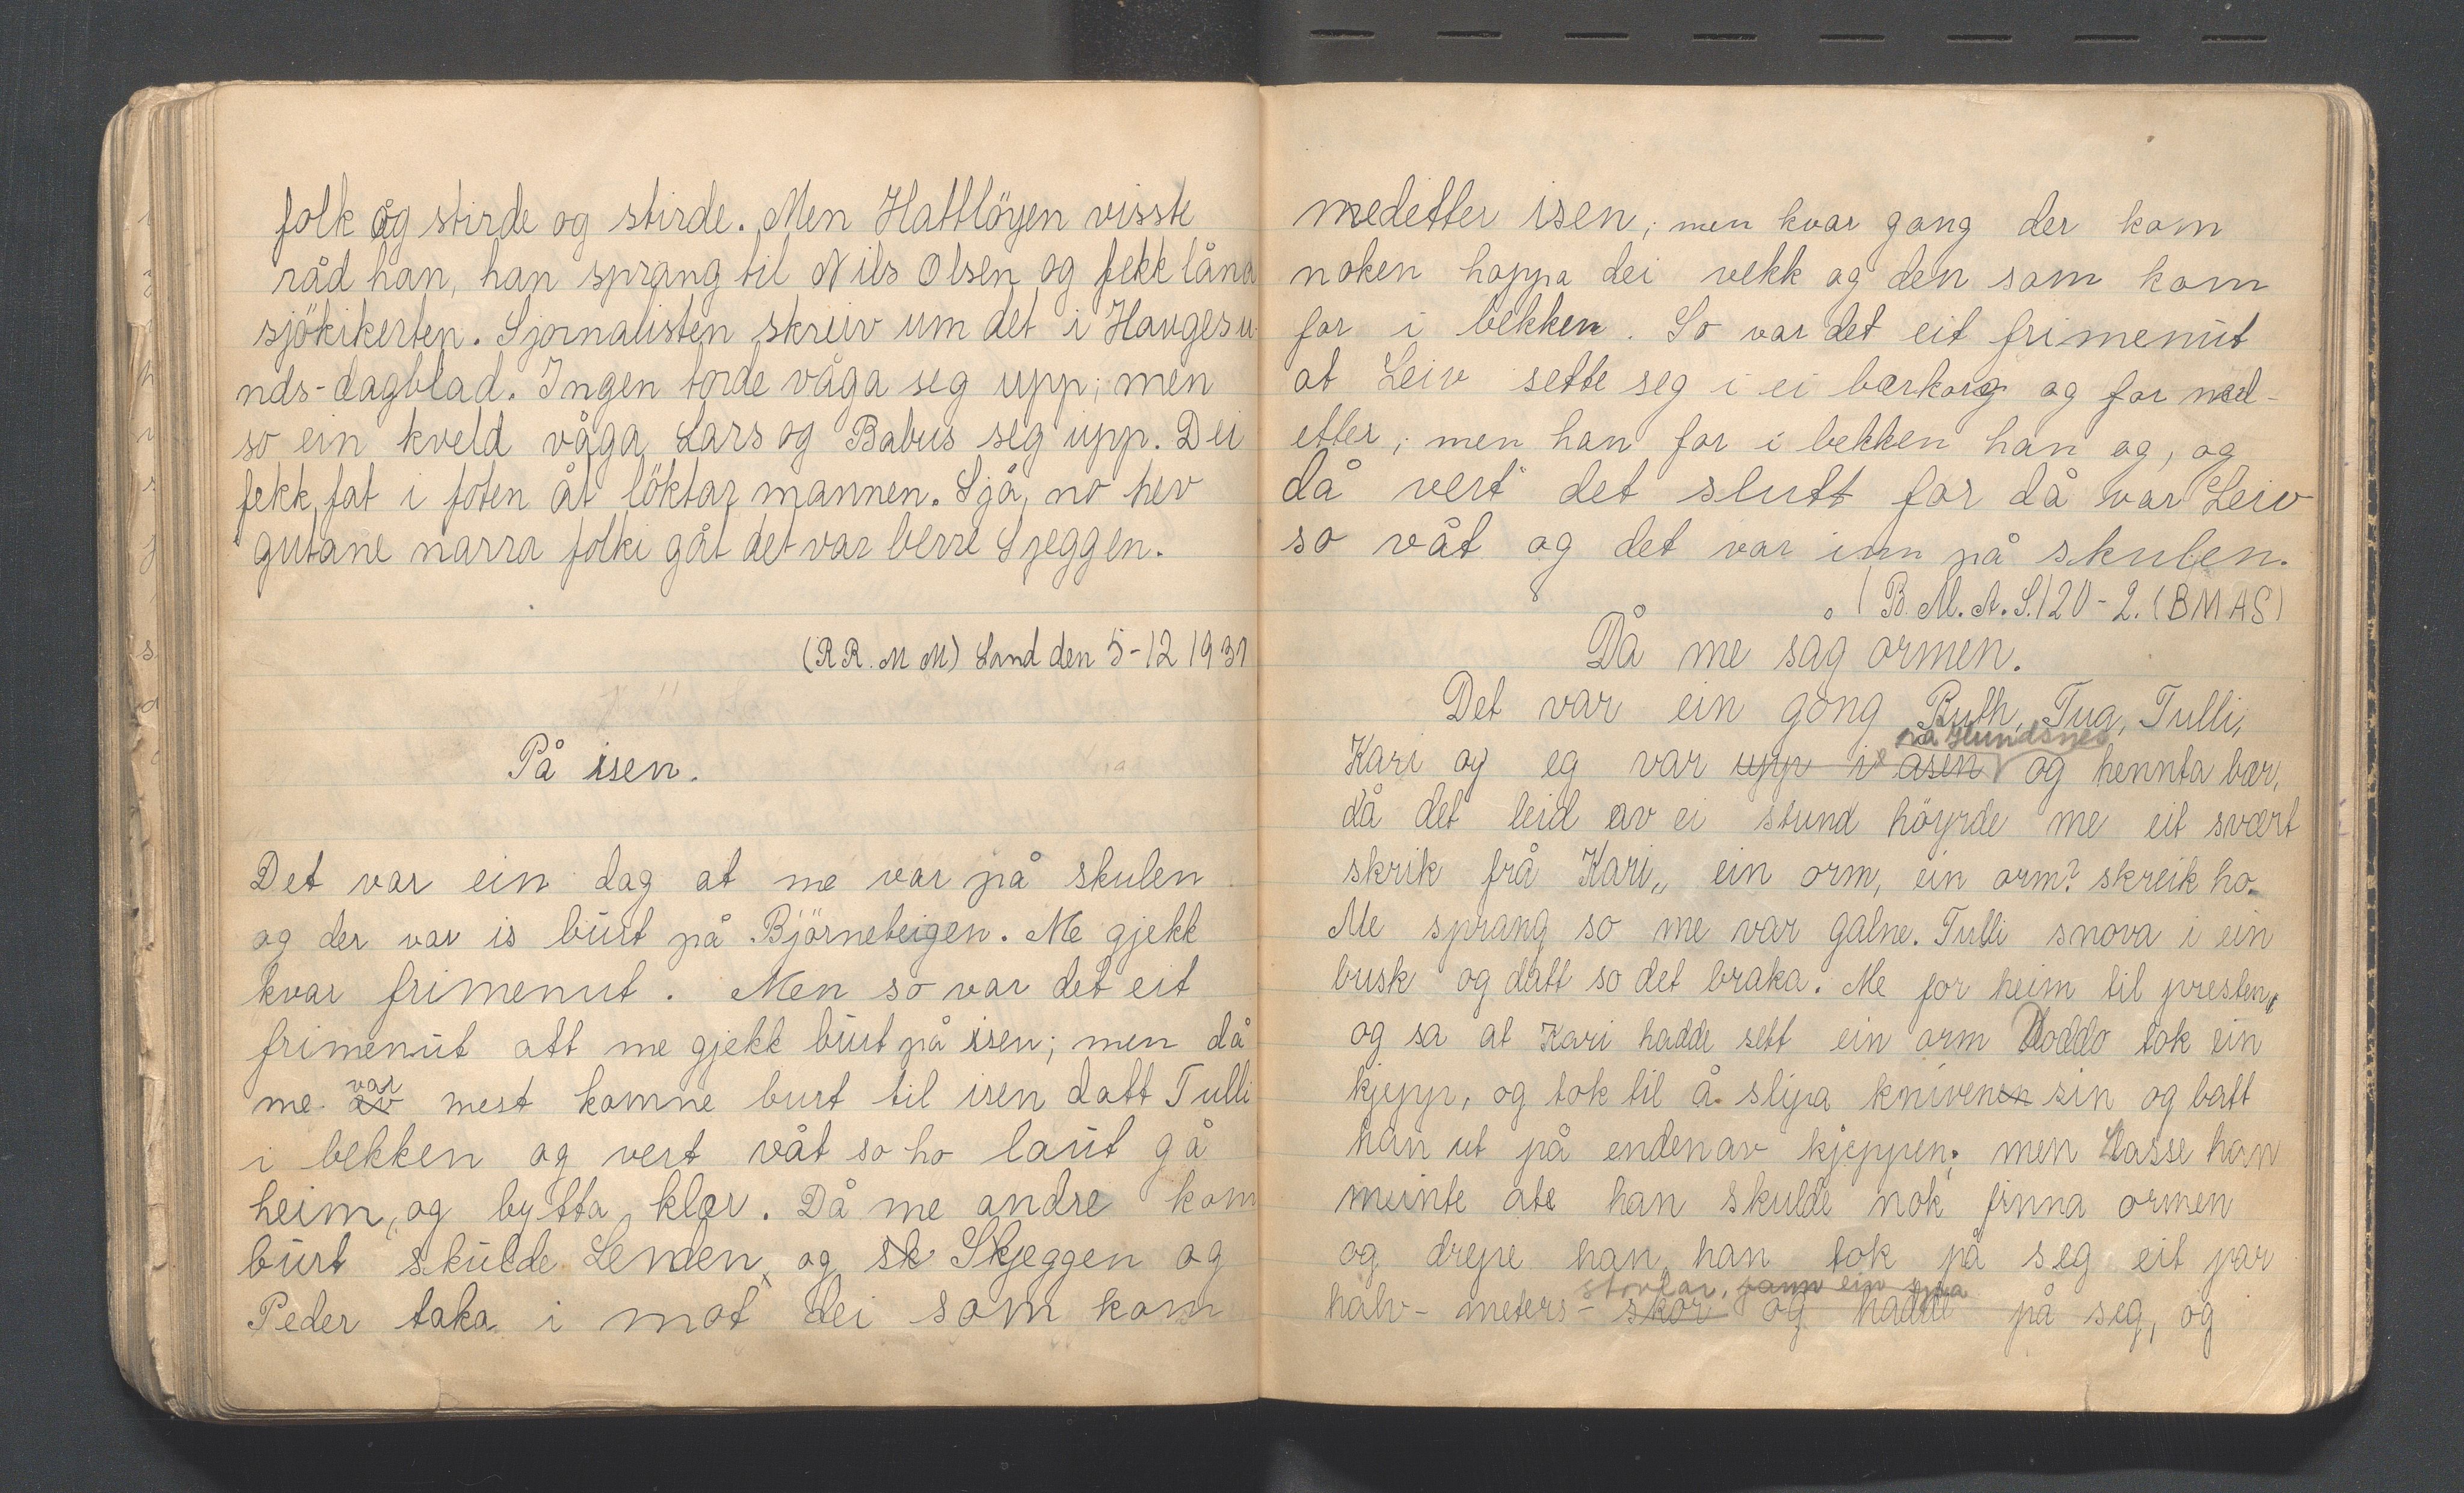 folk og stirde og stirde. Men Hattlöyen visste
råd han, han sprang til Nils Olsen og fekk låna
sjökikerten. Sjornalisten skreiv um det i Haugesu
nds-dagblad. Ingen torde våga seg upp; men
so ein kveld våga Lars og Babus seg upp. Dei
fekk fat i foten åt löktar mannen. Sjå, no hev
gutane narra folki gåt det var berre Sjeggen.
(R R. M M) Sand den 5-12 1931
På isen.
Det var ein dag at me var på skulen
og der var is burt på Björneteigen. Me gjekk
kvar frimenut. Men so var det eit
frimenut att me gjekk burt på isen; men då
me var mest komne burt til isen datt Tulli
i bekken og vert våt so ho laut gå
heim, og bytta klær. Då me andre kom
burt skulde Lenden, og sk Skjeggen og
Peder taka i mot dei som kom
medetter isen; men kvar gang der kom
noken hoppa dei vekk og den som kom
for i bekken. So var det eit frimenut
at Leiv sette seg i ei bærkorg og for ned-
etter; men han for i bekken han og, og
då vert det slutt for då var Leiv
so våt og det var inn på skulen.
(B. M. A. S.) 20-2. (BMAS)
Då me såg ormen.
Det var ein gong Ruth, Tua, Tulli,
på Hundsnes
Kari og eg var upp i åsen og hennta bær,
då det leid av ei stund höyrde me eit svært
skrik frå Kari„ ein orm, ein orm? skreik ho.
Me sprang so me var galne. Tulli snova i ein
busk og datt so det braka. Me for heim til presten,
og sa at Kari hadde sett ein orm Doddo tok ein
kjepp, og tok til å slipa kniven sin og batt
han ut på enden av kjeppen; men Lasse han
meinte ate han skulde nok finna ormen
og drepe han, han tok på seg eit par
stovlar, fann ein
halv-meters-skor og hadde på seg, og